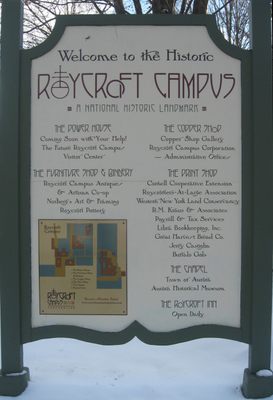 Welcome to the Historic
ROYCROFT CAMPUS
A NATIONAL HISTORIC LANDMARK
THE POWER HOUSE
Coming Soon with Your Help!
The Future Roycroft Campus
Visitor Center
THE FURNITURE SHOP & BINDERY
Roycroft Campus Antiques
& Artisans Co-op
Norberg's Art & Framing
Roycroft Pottery
Roycroft
Campus
ROYCROFT
CAMPUS
CORPORATION
THE COPPER SHOP
Copper Shop Gallery
Roycroft Campus Corporation
Administrative Offices
THE PRINT SHOP
Cornell Cooperative Extension
Roycrofters-At-Large Association
Western New York Land Conservancy
R.M. Kraus & Associates
Payroll & Tax Services
Bookkeeping, Inc.
Great Harvest Bread Co.
Jerry
Buffalo
THE CHAPEL
Town of Aurora
Aurora Historical Museum
THE ROYCROFT INN
Open Daily